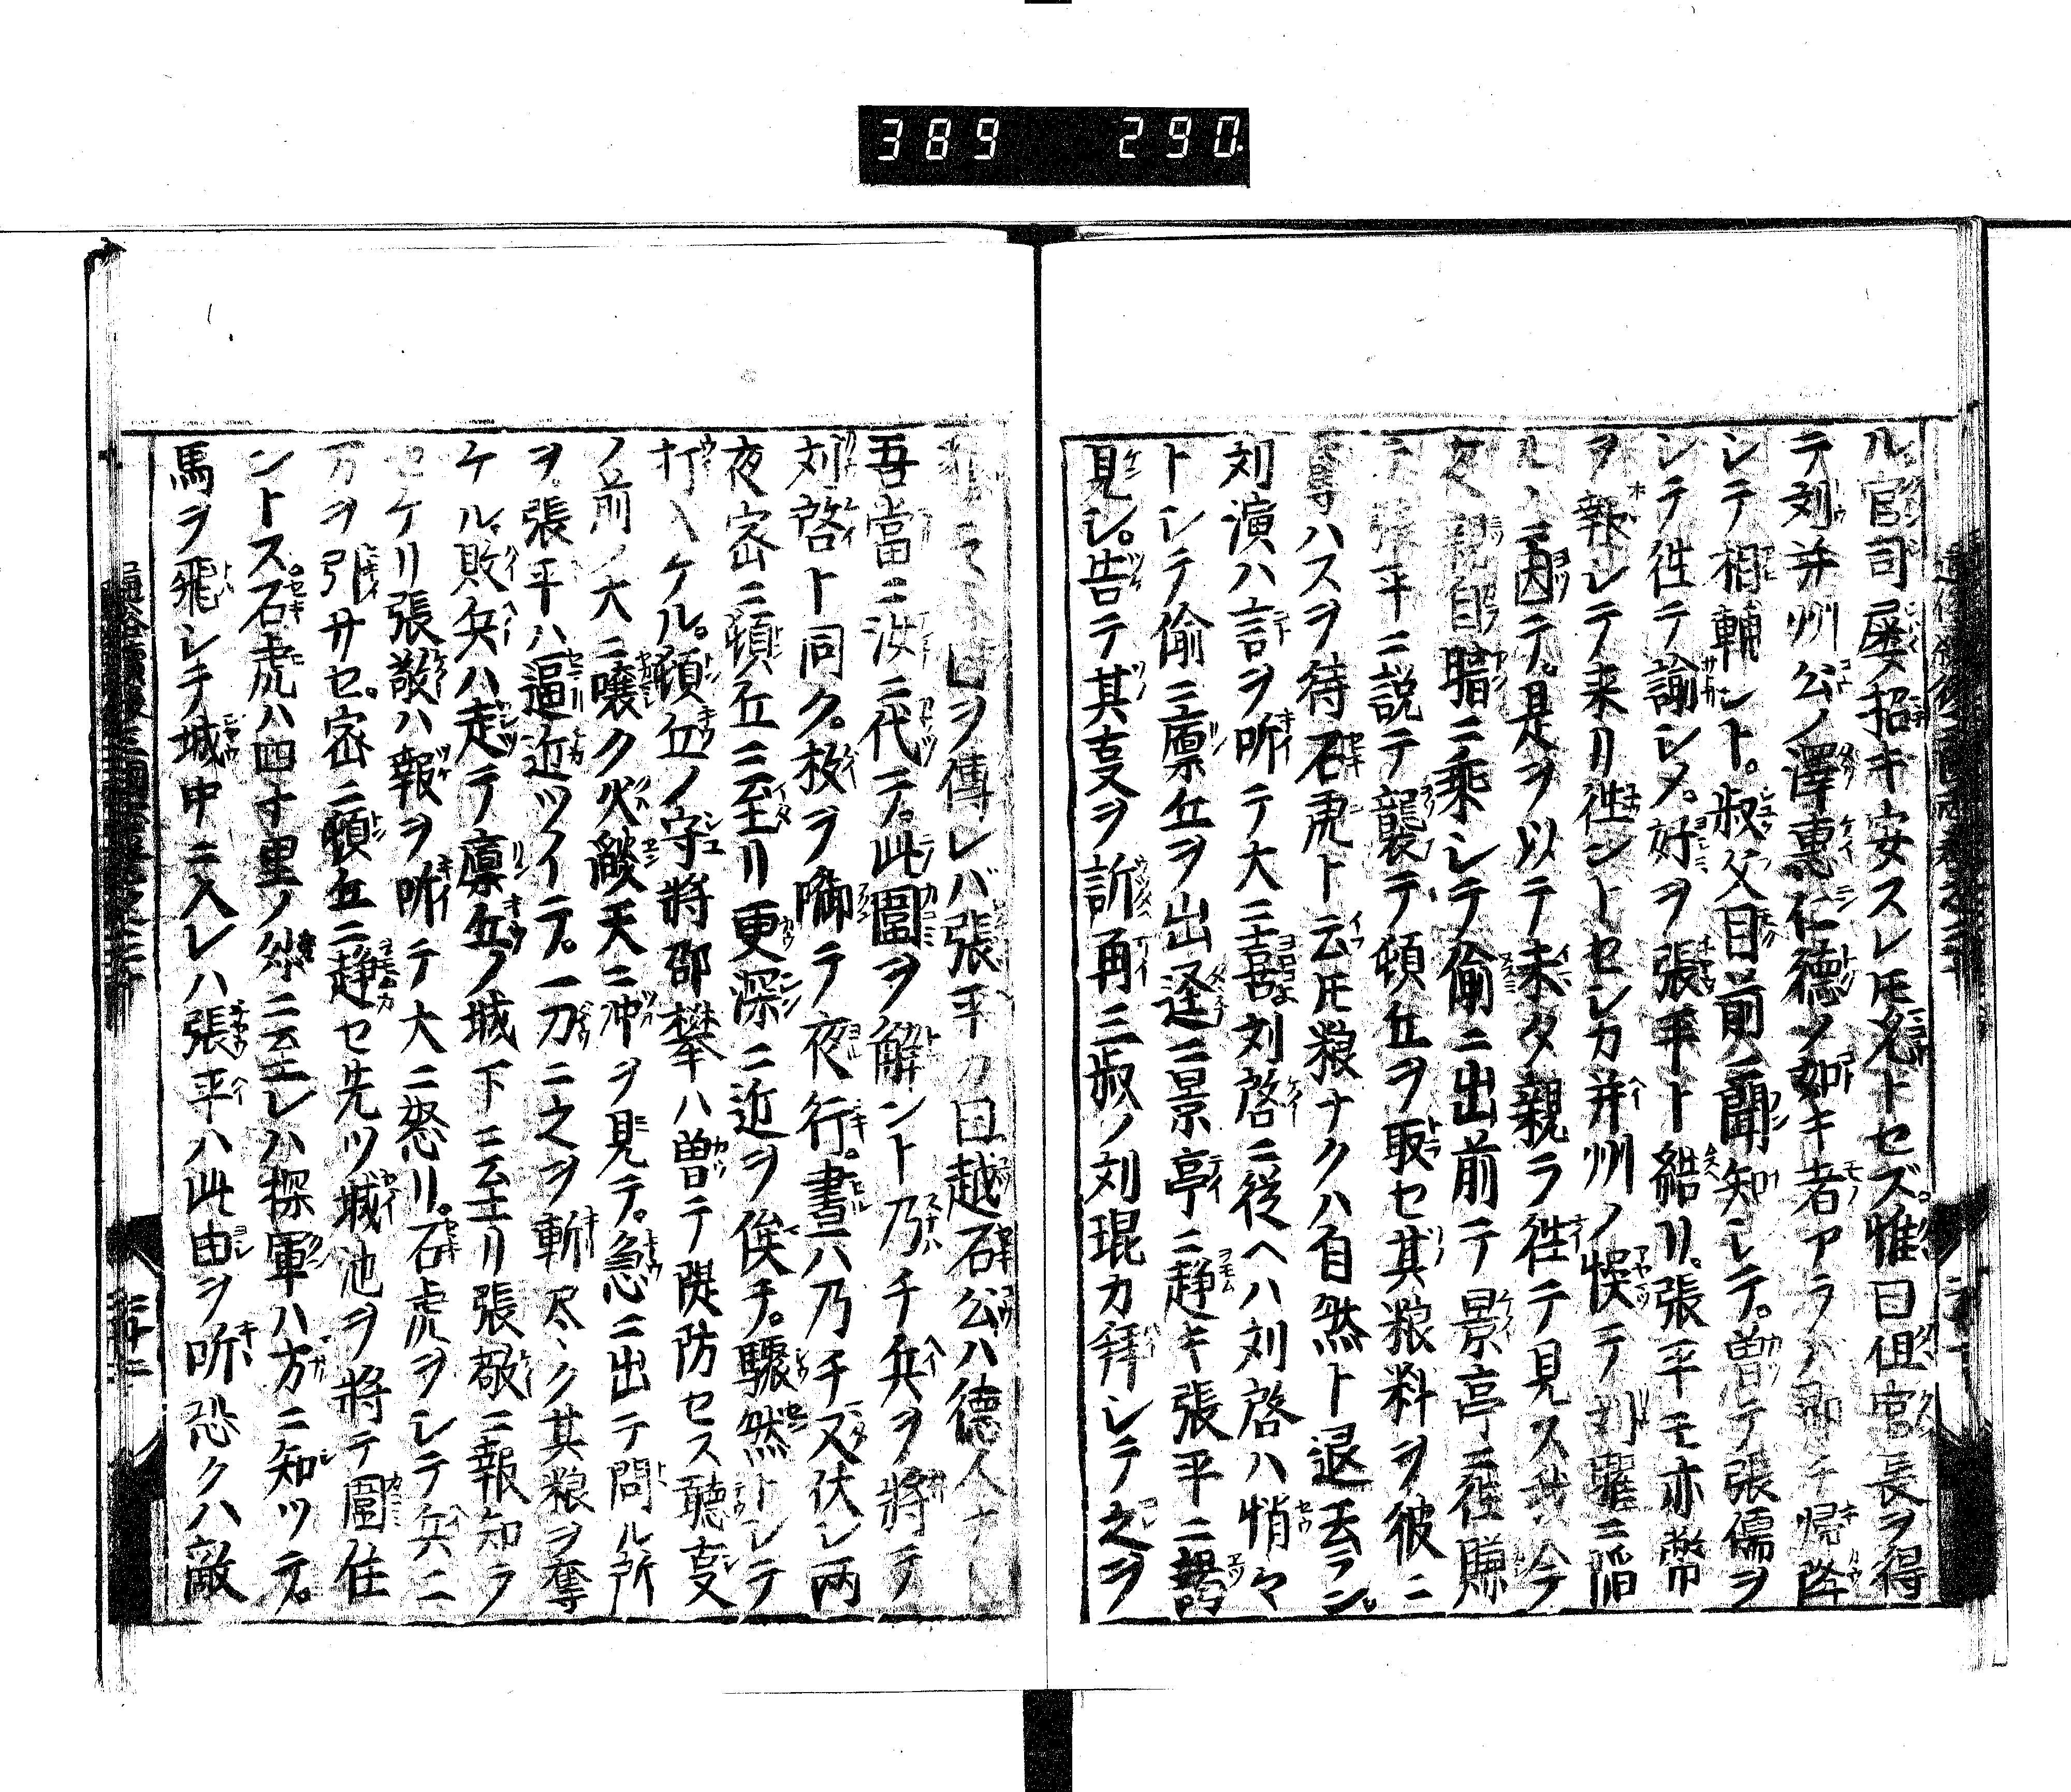 389 290.
ル官司屡招キ安スレ𪜈従トセズ。惟曰但官長ヲ得
テ刘并州公ノ澤惠仁徳ノ如キ者アラハ即チ帰降
シテ相輔ント。叔父目前ニ聞知レテ。曽テ張儒ヲ
シテ徃テ諭シメ。好ヲ張平ト結リ。張平モ亦幣
ヲ報レテ来リ徃ントセシカ并州ノ悞テ刘曜ニ陥
ルヽニ因テ。是ヲ以テ未タ親ラ徃テ見ス我今
親自暗ニ乗シテ偷ニ出前テ景亭ニ徃賺
テ張平ニ説テ襲テ頓丘ヲ取セ其粮料ヲ彼ニ
奪ハスヲ待石虎ト云𪜈粮ナクハ自然ト退去ラン。
刘演ハ言ヲ听テ大ニ喜刘啓ニ従ヘハ刘啓ハ悄々
トシテ偷ニ廪丘ヲ出逕ニ景亭ニ趋キ張平ニ謁
見シ。告テ其事ヲ訴再三叔ノ刘琨カ拜シテ之ヲ
ヲ傳レバ張平カ曰越石公ハ德人ナリ
吾當ニ汝ニ代テ。此圍ヲ解ント乃チ兵ヲ將テ
刘啓ト同ク。枚ヲ啣テ夜行。晝ハ乃チ又伏シ両
夜密ニ頓丘ニ至リ更深ニ近ヲ俟チ。驟然トシテ
打入ケル。頓丘ノ守將邵攀ハ曽テ隄防セス聴事
ノ前ノ大ニ嚷ク火燄天ニ冲ヲ見テ。急ニ出テ問ル所
ヲ張平ハ逼近ツイテ。一刀ニ之ヲ斬尽ク其粮ヲ奪
ケル。敗兵ハ走テ廪丘ノ城下ニ至リ張敬ニ報知ラ
セケリ張敬ハ報ヲ听テ大ニ怒リ。石虎ヲシテ兵二
万ヲ引サセ。密ニ頓丘ニ趋セ先ツ城池ヲ將テ圍住
ントス石虎ハ四十里ノ外ニ至レハ探軍ハ方ニ知ツテ。
馬ヲ飛シテ城中ニ入レハ張平ハ此由ヲ听恐クハ敵